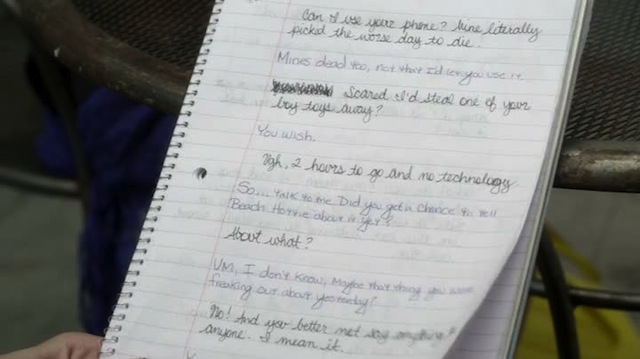 Can I use your phone? Mine literally
picked the worse day to die.
Mines dead too, not that I'd let you use it.
Scared I'd steal one of your
boy toys away?
You wish.
Ugh, 2 hours to go and no technology
So... talk to me Did you get a chance to tell
Beach Hottie about it yet?
About what?
UM, I don't know, Maybe that thing you were
freaking out about yesterday?
No! And you better not say anything to
anyone. I mean it.